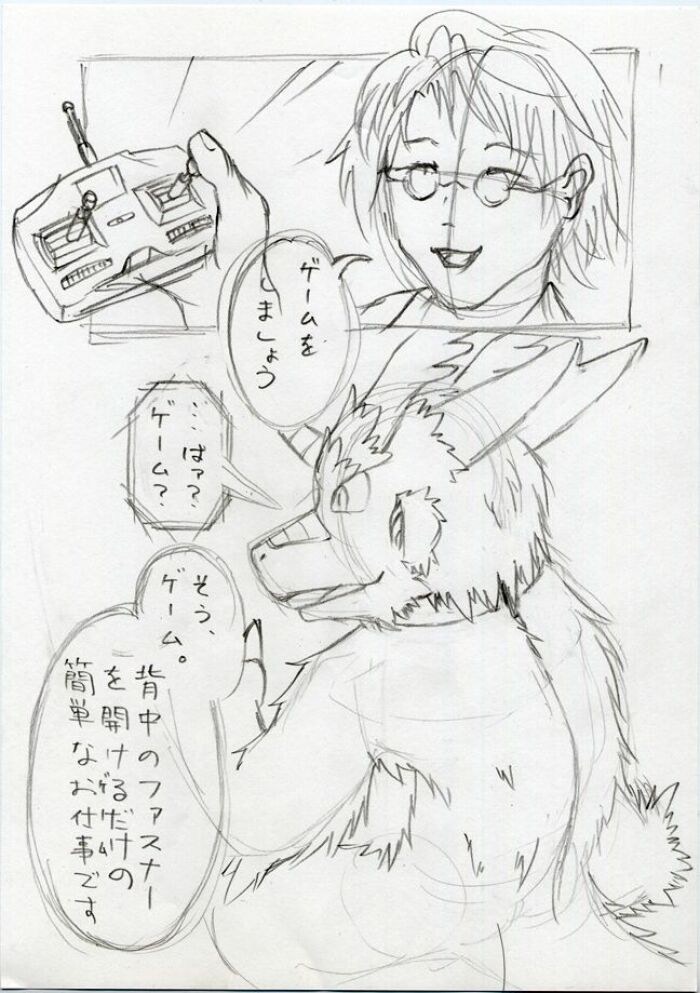 ゲームを
ましょう
…ばァ?
ゲーム?
そう、
ゲーム。
背中のファスナー
を開けるだけの
簡単なお仕事です